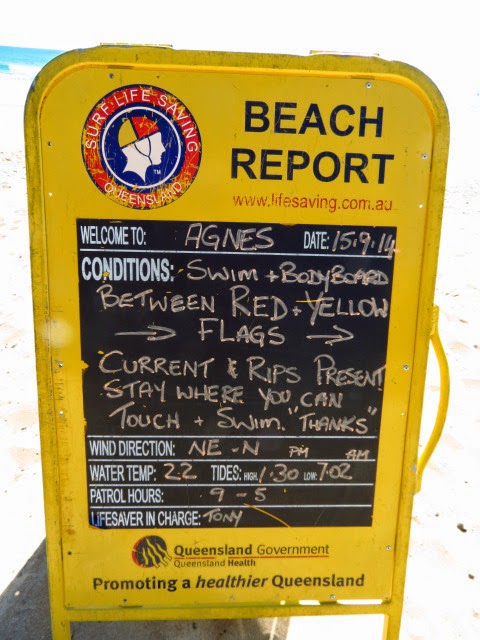 SURF LIFE SAVING
QUEENSLAND
TM
BEACH
REPORT
www.lifesaving.com.au
WELCOME TO: AGNES DATE: 15.9.14
CONDITIONS: SWIM + BODYBOARD
BETWEEN RED + YELLOW
→ FLAGS →
CURRENT & RIPS PRESENT
STAY WHERE YOU CAN
TOUCH + SWIM. "THANKS"
WIND DIRECTION: NE-N PM AM
WATER TEMP: 22 TIDES: HIGH: 1.30 LOW: 7.02
PATROL HOURS: 9-5
LIFESAVER IN CHARGE: TONY
Queensland Government
Queensland Health
Promoting a healthier Queensland